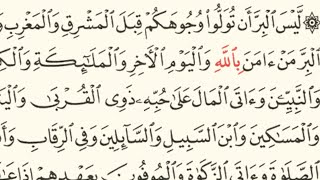 لَّيْسَ ٱلْبِرَّ أَن تُوَلُّوا۟ وُجُوهَكُمْ قِبَلَ ٱلْمَشْرِقِ وَٱلْمَغْرِبِ
ٱلْبِرَّ مَنْ ءَامَنَ بِٱللَّهِ وَٱلْيَوْمِ ٱلْءَاخِرِ وَٱلْمَلَٰٓئِكَةِ
وَٱلنَّبِيِّـۧنَ وَءَاتَى ٱلْمَالَ عَلَىٰ حُبِّهِۦ ذَوِى ٱلْقُرْبَىٰ
وَٱلْمَسَٰكِينَ وَٱبْنَ ٱلسَّبِيلِ وَٱلسَّآئِلِينَ وَفِى ٱلرِّقَابِ
ٱلصَّلَوٰةَ وَءَاتَى ٱلزَّكَوٰةَ وَٱلْمُوفُونَ بِعَهْدِهِمْ إِذَا